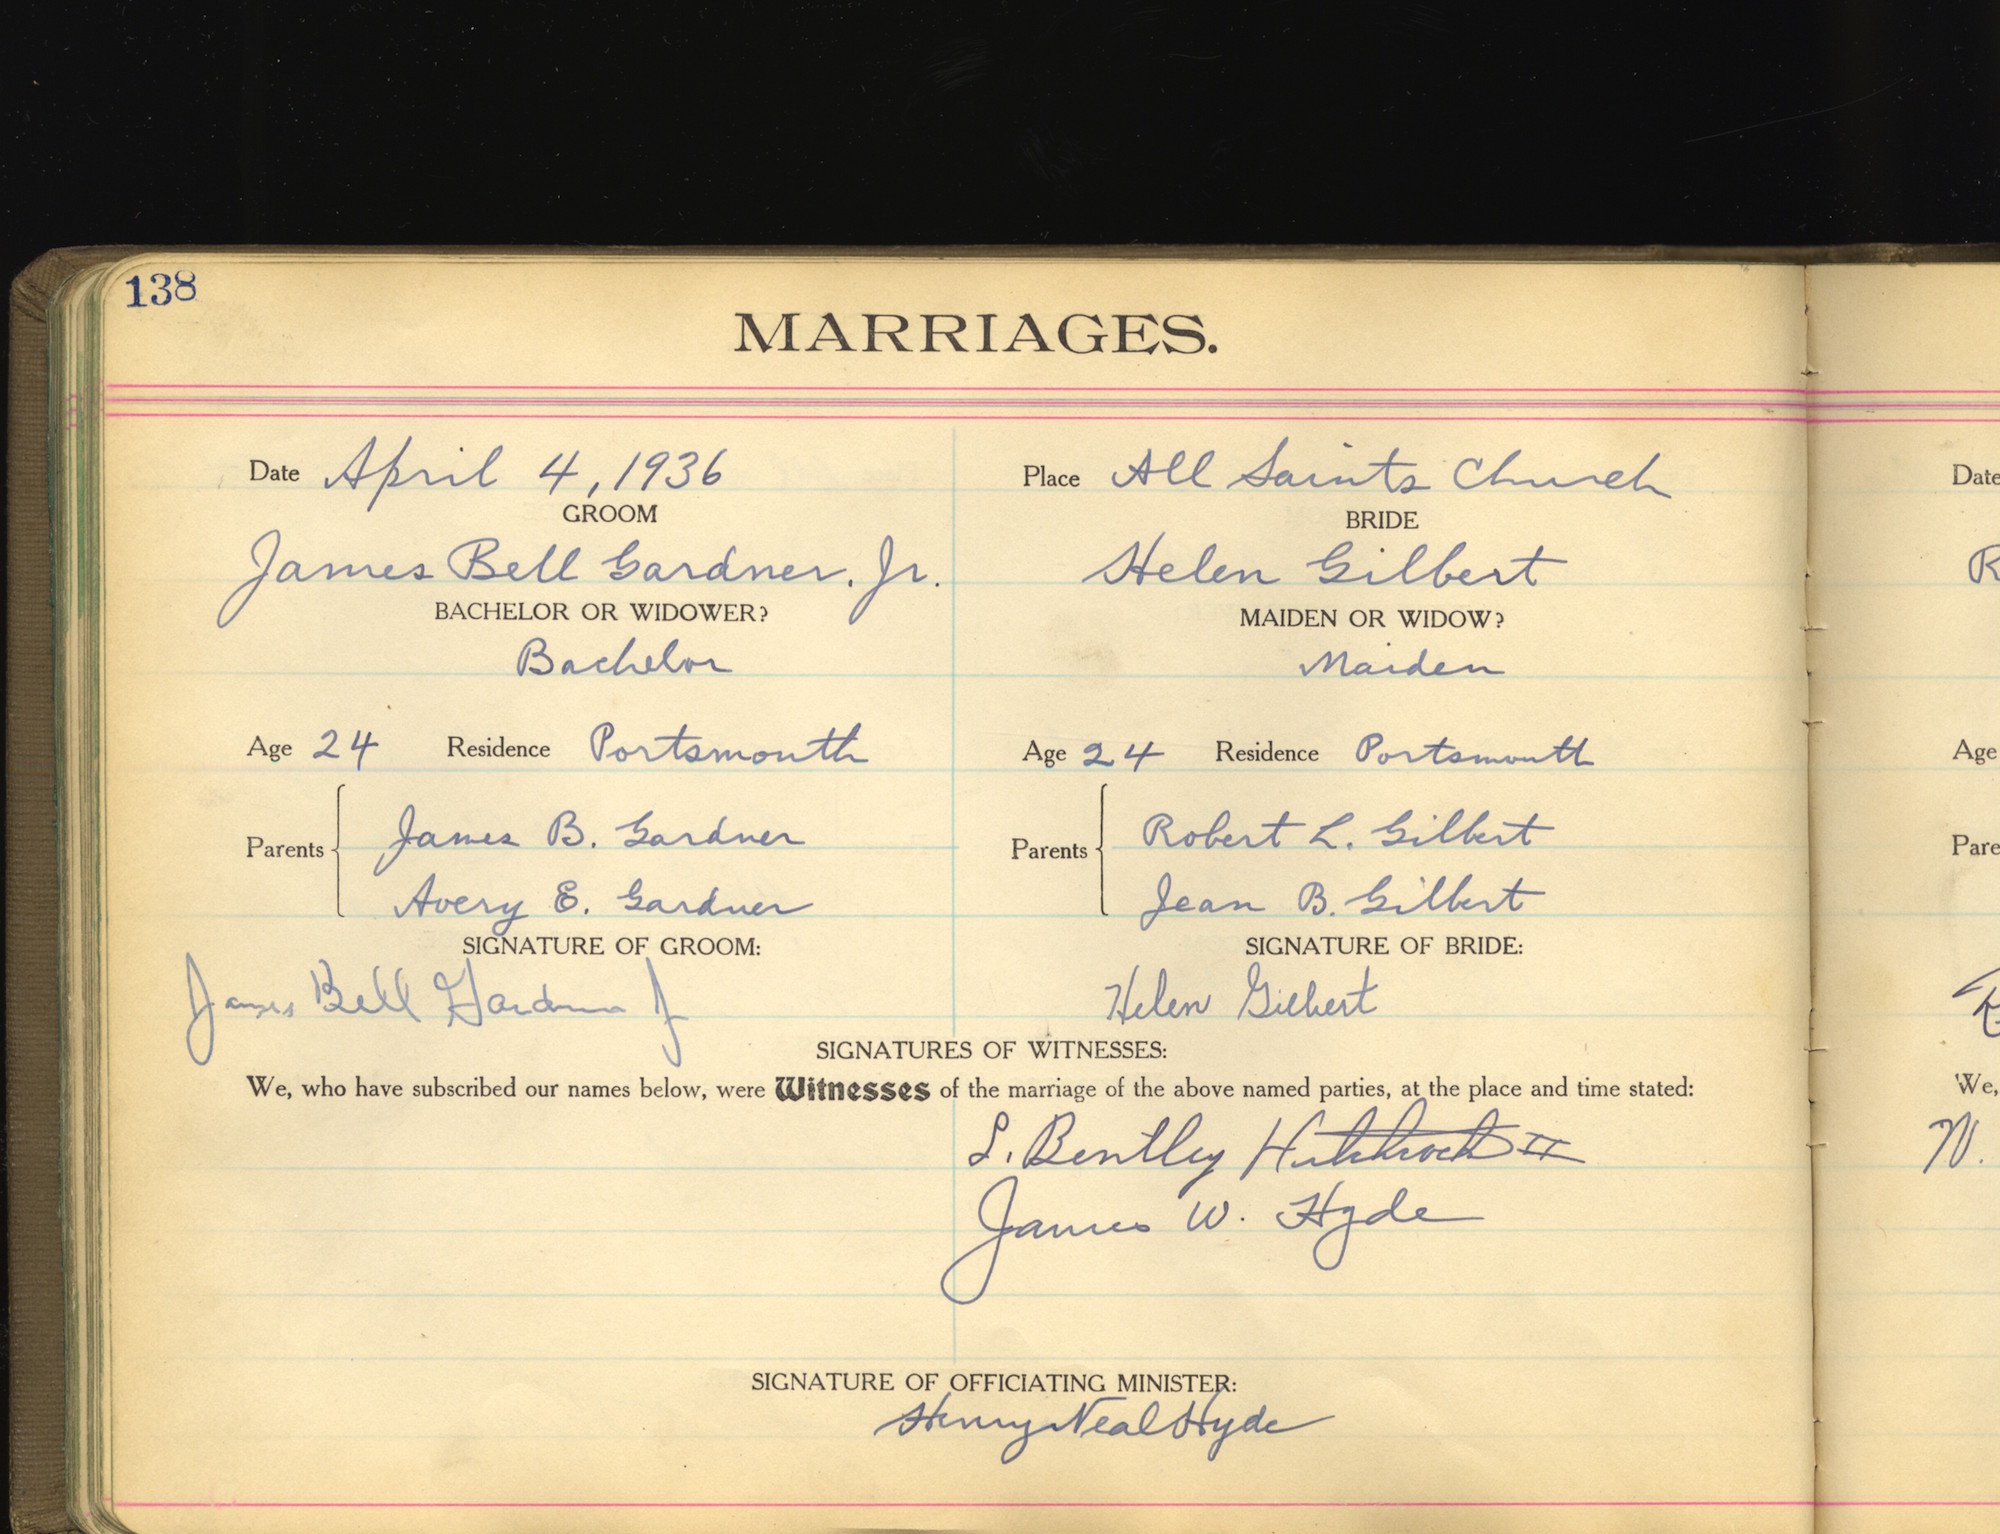 138
MARRIAGES.
Date April 4, 1936
Place All Saints Church
GROOM
James Bell Gardner, Jr.
BRIDE
Helen Gilbert
BACHELOR OR WIDOWER?
Bachelor
MAIDEN OR WIDOW?
Maiden
Age 24 Residence Portsmouth
Age 24 Residence Portsmouth
Parents James B. Gardner
Avery E. Gardner
Parents Robert L. Gilbert
Jean B. Gilbert
SIGNATURE OF GROOM:
James Bell Gardner Jr
SIGNATURE OF BRIDE:
Helen Gilbert
SIGNATURES OF WITNESSES:
We, who have subscribed our names below, were Witnesses of the marriage of the above named parties, at the place and time stated:
S. Bentley Hitchcock II
James W. Hyde
SIGNATURE OF OFFICIATING MINISTER:
Henry Neal Hyde
Date
R
Age
Pare
We,
W.